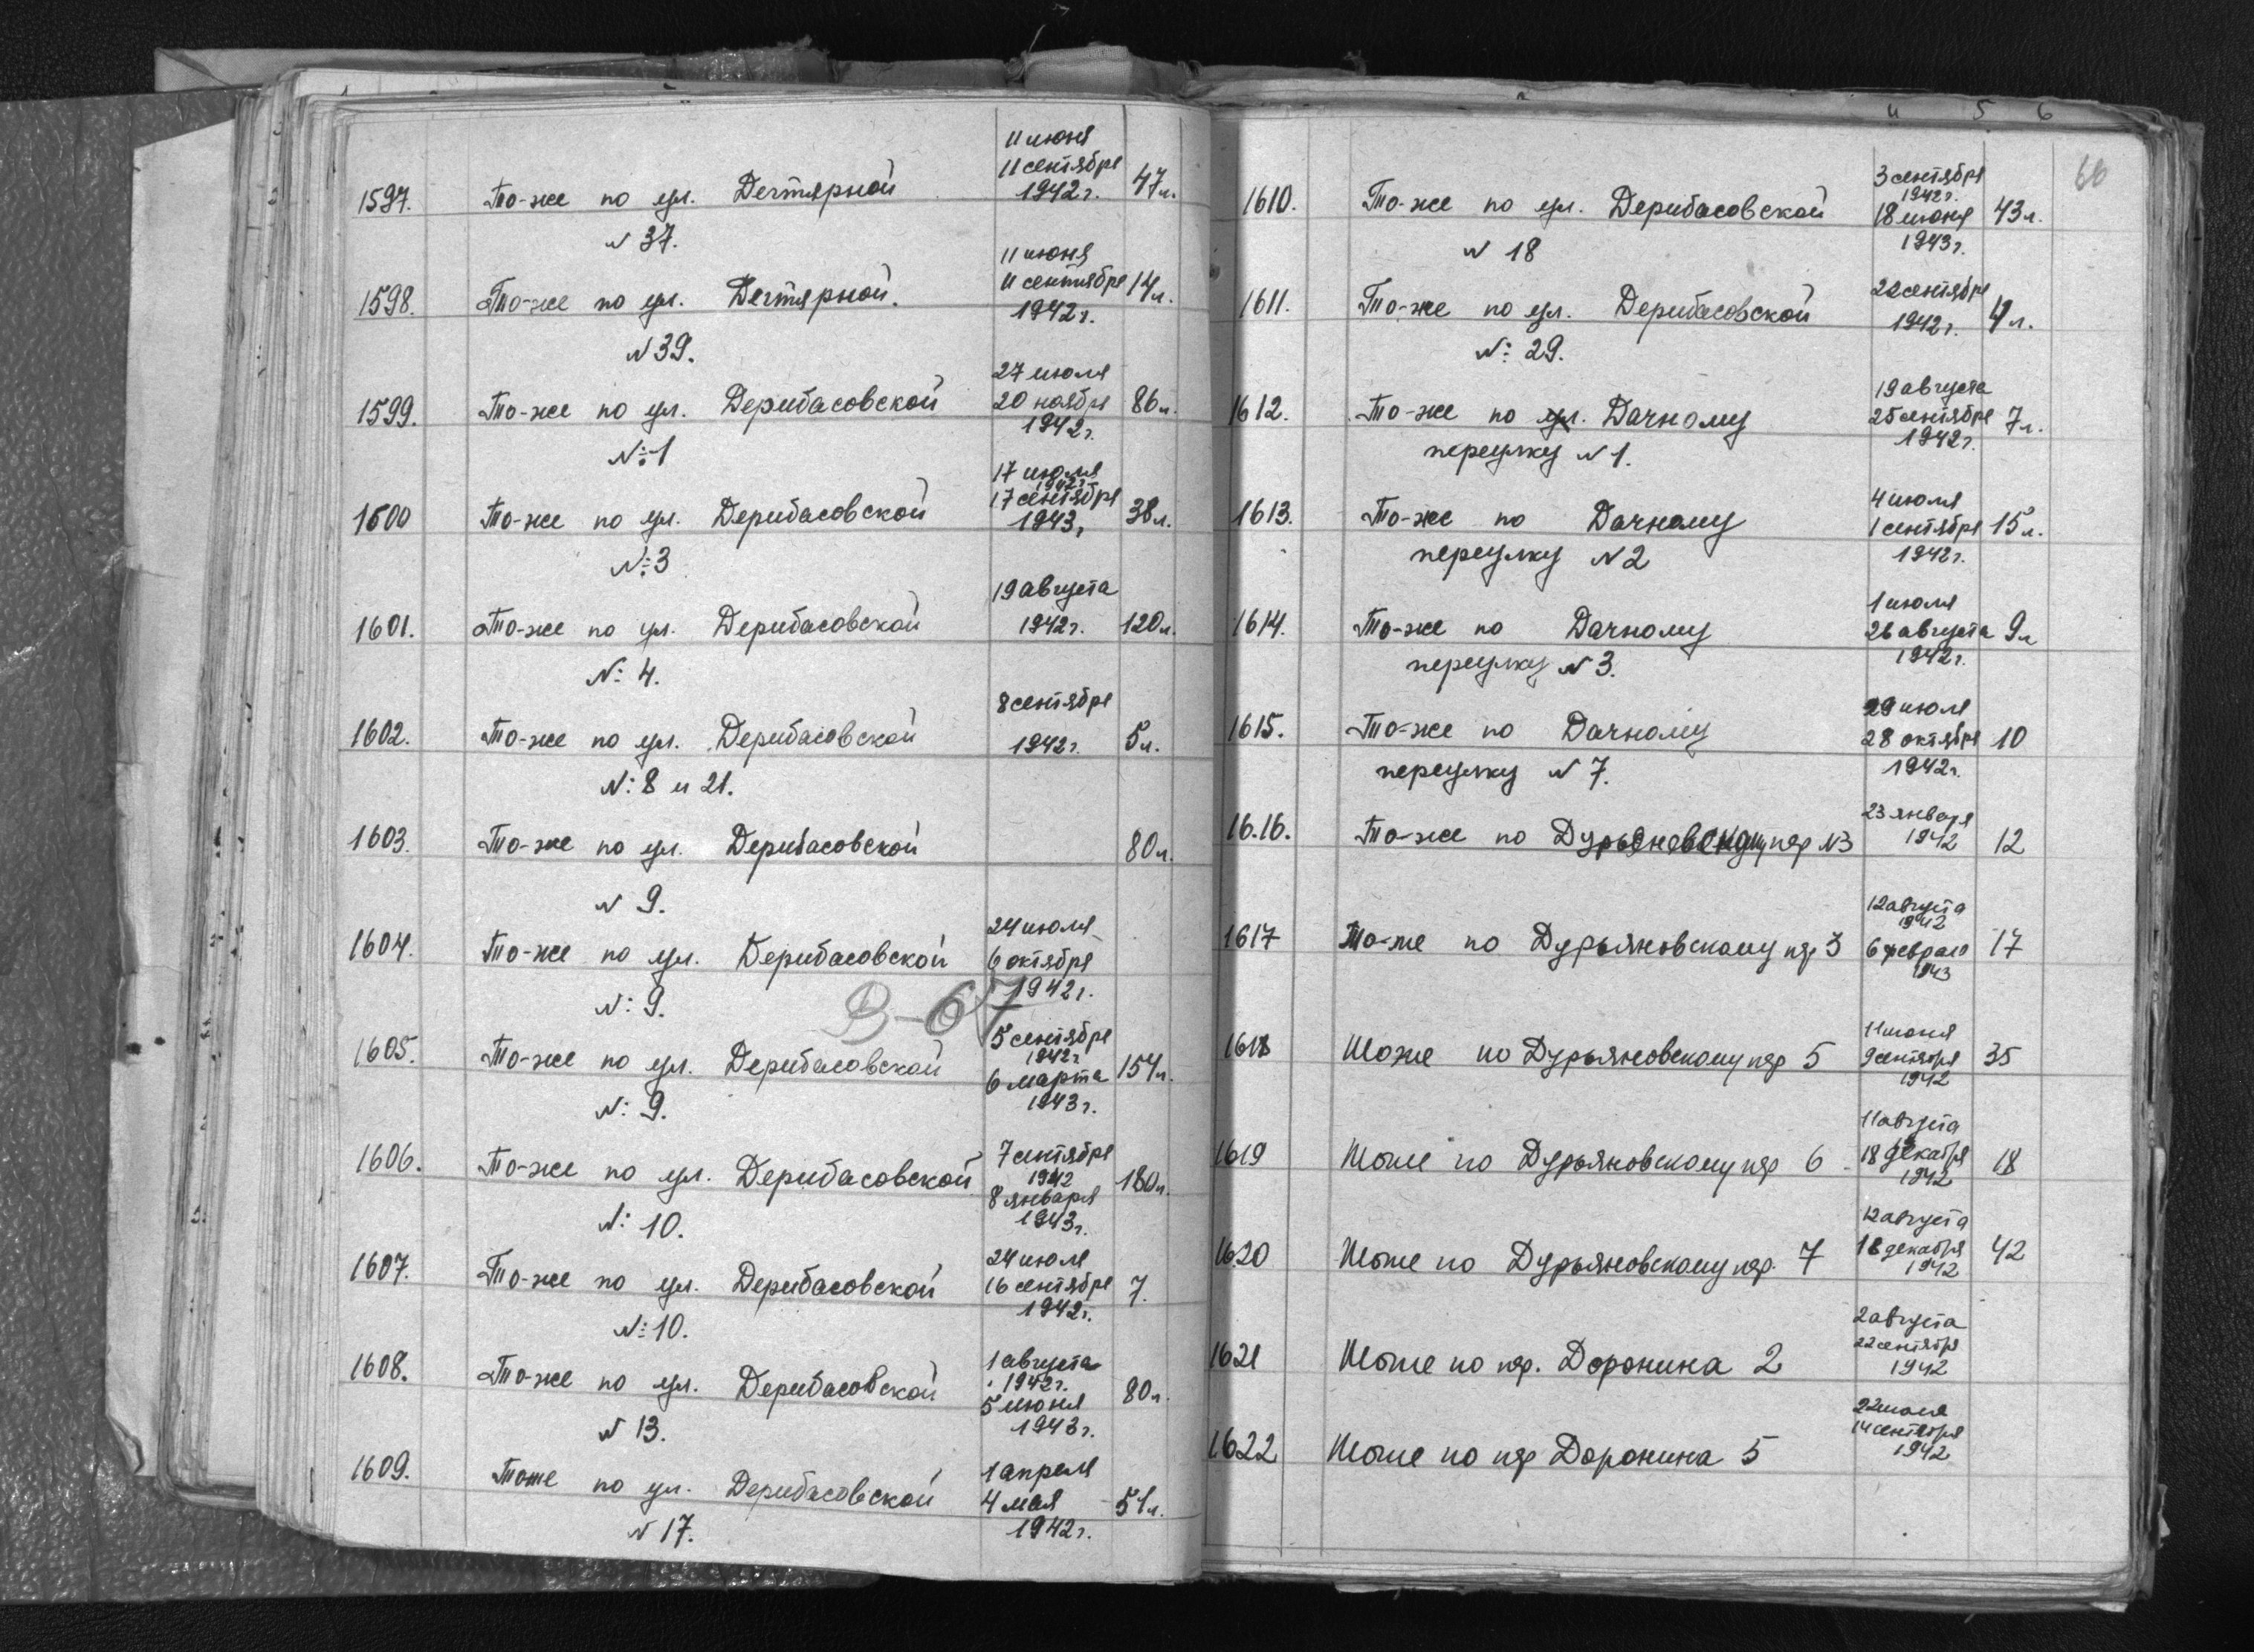 11 июня
11 сентября
1597. То-же по ул. Дегтярной 1942 г. 47 л.
N 37.
11 июня
11 сентября
1598. То-же по ул. Дегтярной. 1942 г. 14 л.
N 39.
27 июля
1599. То-же по ул. Дерибасовской 20 ноября 86 л.
1942 г.
N: 1
17 июля
1942 г.
17 сентября
1600 То-же по ул. Дерибасовской 1943, 38 л.
N: 3
19 августа
1601. То-же по ул. Дерибасовской 1942 г. 120 л.
N: 4.
8 сентября
1602. То-же по ул. Дерибасовской 1942 г. 5 л.
N: 8 и 21.
1603. То-же по ул. Дерибасовской 80 л.
N 9.
24 июля
1604. То-же по ул. Дерибасовской 6 октября
1942 г.
N: 9.
В-67
5 сентября
1942 г
1605. То-же по ул. Дерибасовской 6 марта 154 л.
1943 г.
N: 9.
7 сентября
1606. То-же по ул. Дерибасовской 1942 180 л.
8 января
1943 г.
N: 10.
24 июля
1607. То-же по ул. Дерибасовской 16 сентября 7.
1942 г.
N: 10.
1 августа
1608. То-же по ул. Дерибасовской 1942 г. 80 л.
5 июня
1943 г.
N 13.
1 апреля
1609. Тоже по ул. Дерибасовской 4 мая 51 л.
1942 г.
N 17.
4 5 6
66
3 сентября
1942 г.
1610. То-же по ул. Дерибасовской 18 июня 43 л.
1943 г.
N 18
22 сентября
1611. То-же по ул. Дерибасовской 1942 г. 4 л.
N: 29.
19 августа
1612. То-же по ул. Дачному 25 сентября 7 л.
1942 г.
переулку N 1.
4 июля
1613. То-же по Дачному 1 сентября 15 л.
переулку N 2 1942 г.
1 июля
1614. То-же по Дачному 26 августа 9 л
1942 г.
переулку N 3.
29 июля
1615. То-же по Дачному 28 октября 10
переулку N 7. 1942 г.
23 января
16.16. То-же по Дурьяновскому пер N3 1942 12
12 августа
1942
1617 То-же по Дурьяновскому пер 3 6 феврал 17
1943
11 июня
1618 Тоже по Дурьяновскому пер 5 9 сентября 35
1942
11 августа
1619 Тоже по Дурьяновскому пер 6 18 декабря 18
1942
12 августа
1620 Тоже по Дурьяновскому пер. 7 18 декабря 42
1942
2 августа
22 сентября
1621 Тоже по пер. Доронина 2 1942
22 июля
14 сентября
1622 Тоже по пер Доронина 5 1942